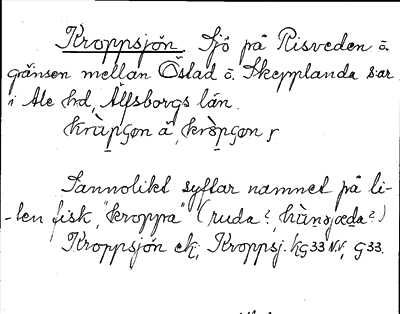 Kroppsjön. Sjö på Risveden å
gränsen mellan Östad o. Skepplanda s:ar
i Ale hd, Älfsborgs län.
Sannolikt syftar namnet på li-
-ten fisk, "kroppa" (ruda?,
Kroppsjön ek, Kroppsj. kG33 N.V., G33.